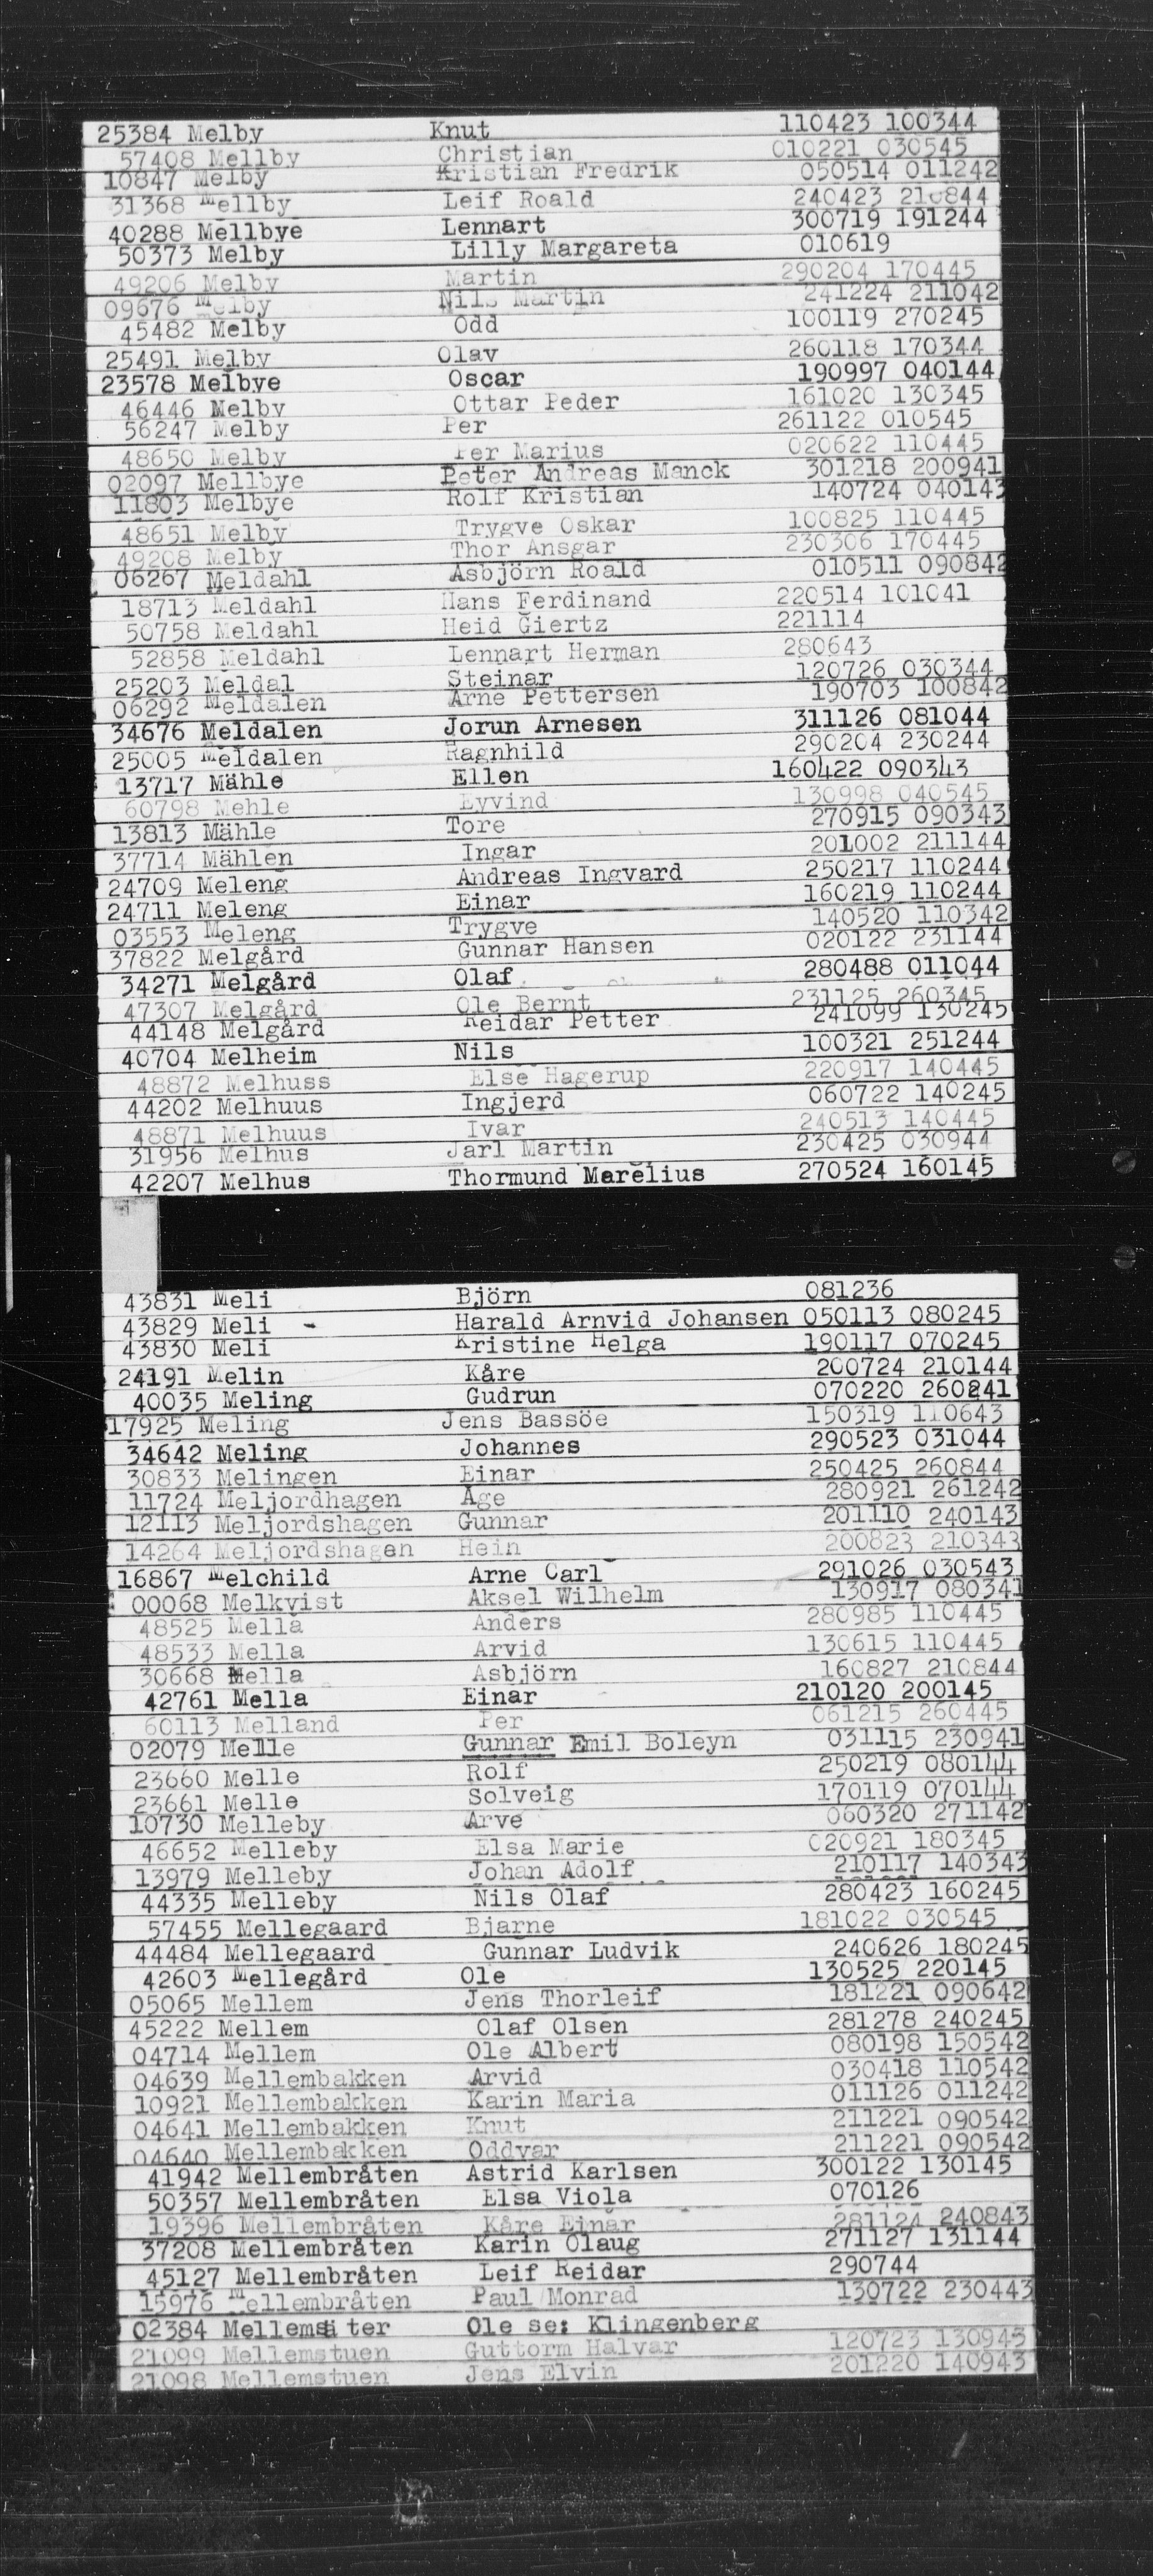 25384 Melby Knut 110423 100344
57408 Mellby Christian 010221 030545
10847 Melby Kristian Fredrik 050514 011242
31368 Mellby Leif Roald 240423 210844
40288 Mellbye Lennart 300719 191244
50373 Melby Lilly Margareta 010619
49206 Melby Martin 290204 170445
09676 Melby Nils Martin 241224 211042
45482 Melby Odd 100119 270245
25491 Melby Olav 260118 170344
23578 Melbye Oscar 190997 040144
46446 Melby Ottar Peder 161020 130345
56247 Melby Per 261122 010545
48650 Melby Per Marius 020622 110445
02097 Mellbye Peter Andreas Manck 301218 200941
11803 Melbye Rolf Kristian 140724 040143
48651 Melby Trygve Oskar 100825 110445
49208 Melby Thor Ansgar 230306 170445
06267 Meldahl Asbjörn Roald 010511 090842
18713 Meldahl Hans Ferdinand 220514 101041
50758 Meldahl Heid Giertz 221114
52858 Meldahl Lennart Herman 280643
25203 Meldal Steinar 120726 030344
06292 Meldalen Arne Pettersen 190703 100842
34676 Meldalen Jorun Arnesen 311126 081044
25005 Meldalen Ragnhild 290204 230244
13717 Mähle Ellen 160422 090343
60798 Mehle Eyvind 130998 040545
13813 Mähle Tore 270915 090343
37714 Mählen Ingar 201002 211144
24709 Meleng Andreas Ingvard 250217 110244
24711 Meleng Einar 160219 110244
03553 Meleng Trygve 140520 110342
37822 Melgård Gunnar Hansen 020122 231144
34271 Melgård Olaf 280488 011044
47307 Melgård Ole Bernt 231125 260345
44148 Melgård Reidar Petter 241099 130245
40704 Melheim Nils 100321 251244
48872 Melhuss Else Hagerup 220917 140445
44202 Melhuus Ingjerd 060722 140245
48871 Melhuus Ivar 240513 140445
31956 Melhus Jarl Martin 230425 030944
42207 Melhus Thormund Marelius 270524 160145
43831 Meli Björn 081236
43829 Meli - Harald Arnvid Johansen 050113 080245
43830 Meli Kristine Helga 190117 070245
24191 Melin Kåre 200724 210144
40035 Meling Gudrun 070220 260241
17925 Meling Jens Bassöe 150319 110643
34642 Meling Johannes 290523 031044
30833 Melingen Einar 250425 260844
11724 Meljordhagen Åge 280921 261242
12113 Meljordshagen Gunnar 201110 240143
14264 Meljordshagen Hein 200823 210343
16867 Melchild Arne Carl 291026 030543
00068 Melkvist Aksel Wilhelm 130917 080341
48525 Mella Anders 280985 110445
48533 Mella Arvid 130615 110445
30668 Mella Asbjörn 160827 210844
42761 Mella Einar 210120 200145
60113 Melland Per 061215 260445
02079 Melle Gunnar Emil Boleyn 031115 230941
23660 Melle Rolf 250219 080144
23661 Melle Solveig 170119 070144
10730 Melleby Arve 060320 271142
46652 Melleby Elsa Marie 020921 180345
13979 Melleby Johan Adolf 210117 140343
44335 Melleby Nils Olaf 280423 160245
57455 Mellegaard Bjarne 181022 030545
44484 Mellegaard Gunnar Ludvik 240626 180245
42603 Mellegård Ole 130525 220145
05065 Mellem Jens Thorleif 181221 090642
45222 Mellem Olaf Olsen 281278 240245
04714 Mellem Ole Albert 080198 150542
04639 Mellembakken Arvid 030418 110542
10921 Mellembakken Karin Maria 011126 011242
04641 Mellembakken Knut 211221 090542
04640 Mellembakken Oddvar 211221 090542
41942 Mellembråten Astrid Karlsen 300122 130145
50357 Mellembråten Elsa Viola 070126
19396 Mellembråten Kåre Einar 281124 240843
37208 Mellembråten Karin Olaug 271127 131144
45127 Mellembråten Leif Reidar 290744
15976 Mellembråten Paul Monrad 130722 230443
02384 Mellemsäter Ole se: Klingenberg
21099 Mellemstuen Guttorm Halvar 120723 130943
21098 Mellemstuen Jens Elvin 201220 140943